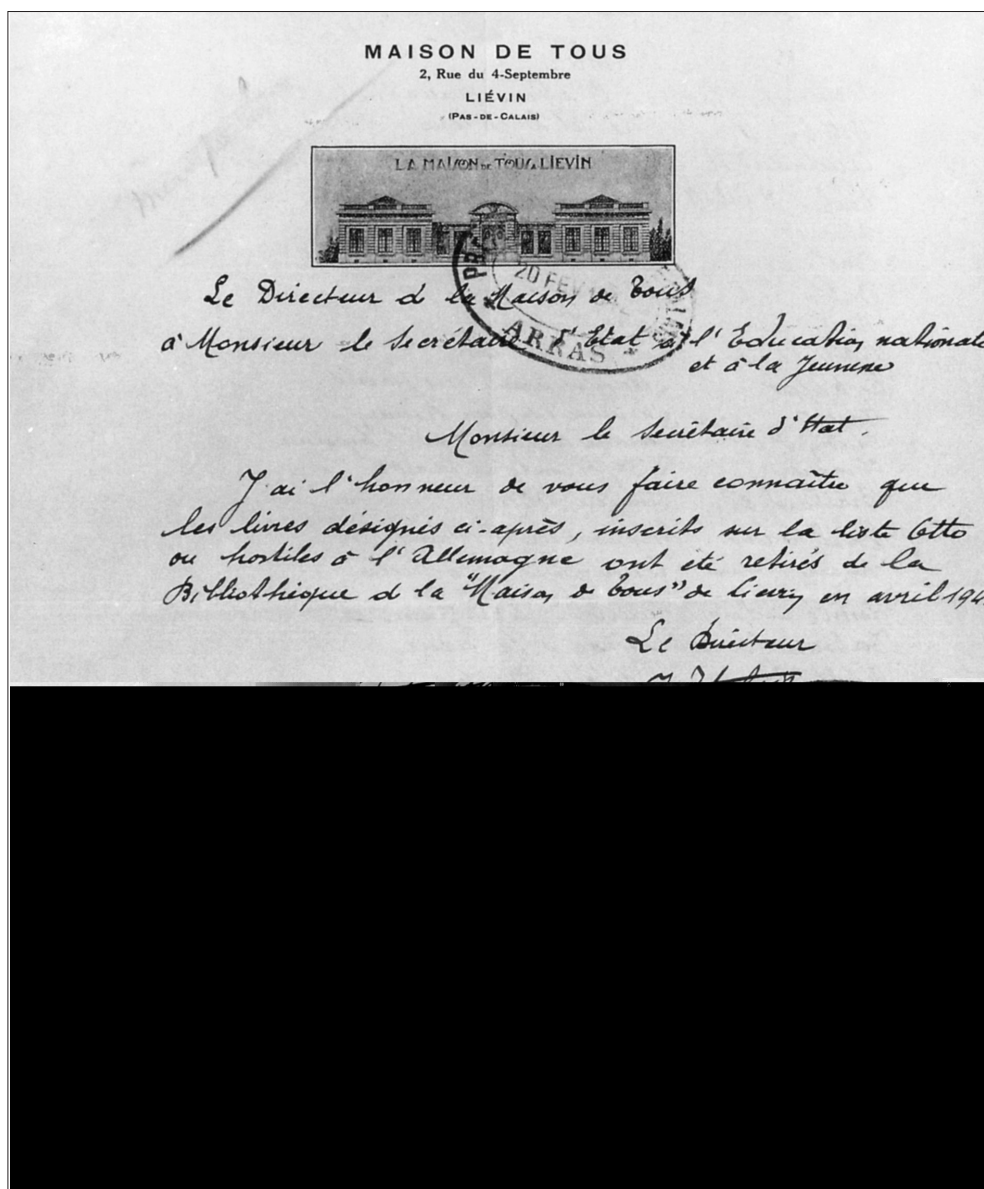 MAISON DE TOUS
2, Rue du 4-Septembre
LIÉVIN
(PAS-DE-CALAIS)
LA MAISON DE TOUS LIEVIN
20 FEV
ARRAS
Le Directeur d la Maison de Tous
à Monsieur le Secrétaire d'Etat à l'Education nationale
et à la Jeunesse
Monsieur le Secrétaire d'Etat.
J'ai l'honneur de vous faire connaître que
les livres désignés ci-après, inscrits sur la liste Otto
ou hostiles à l'Allemagne ont été retirés de la
Bibliothèque d la "Maison de Tous" de Lievin en avril 194
Le Directeur